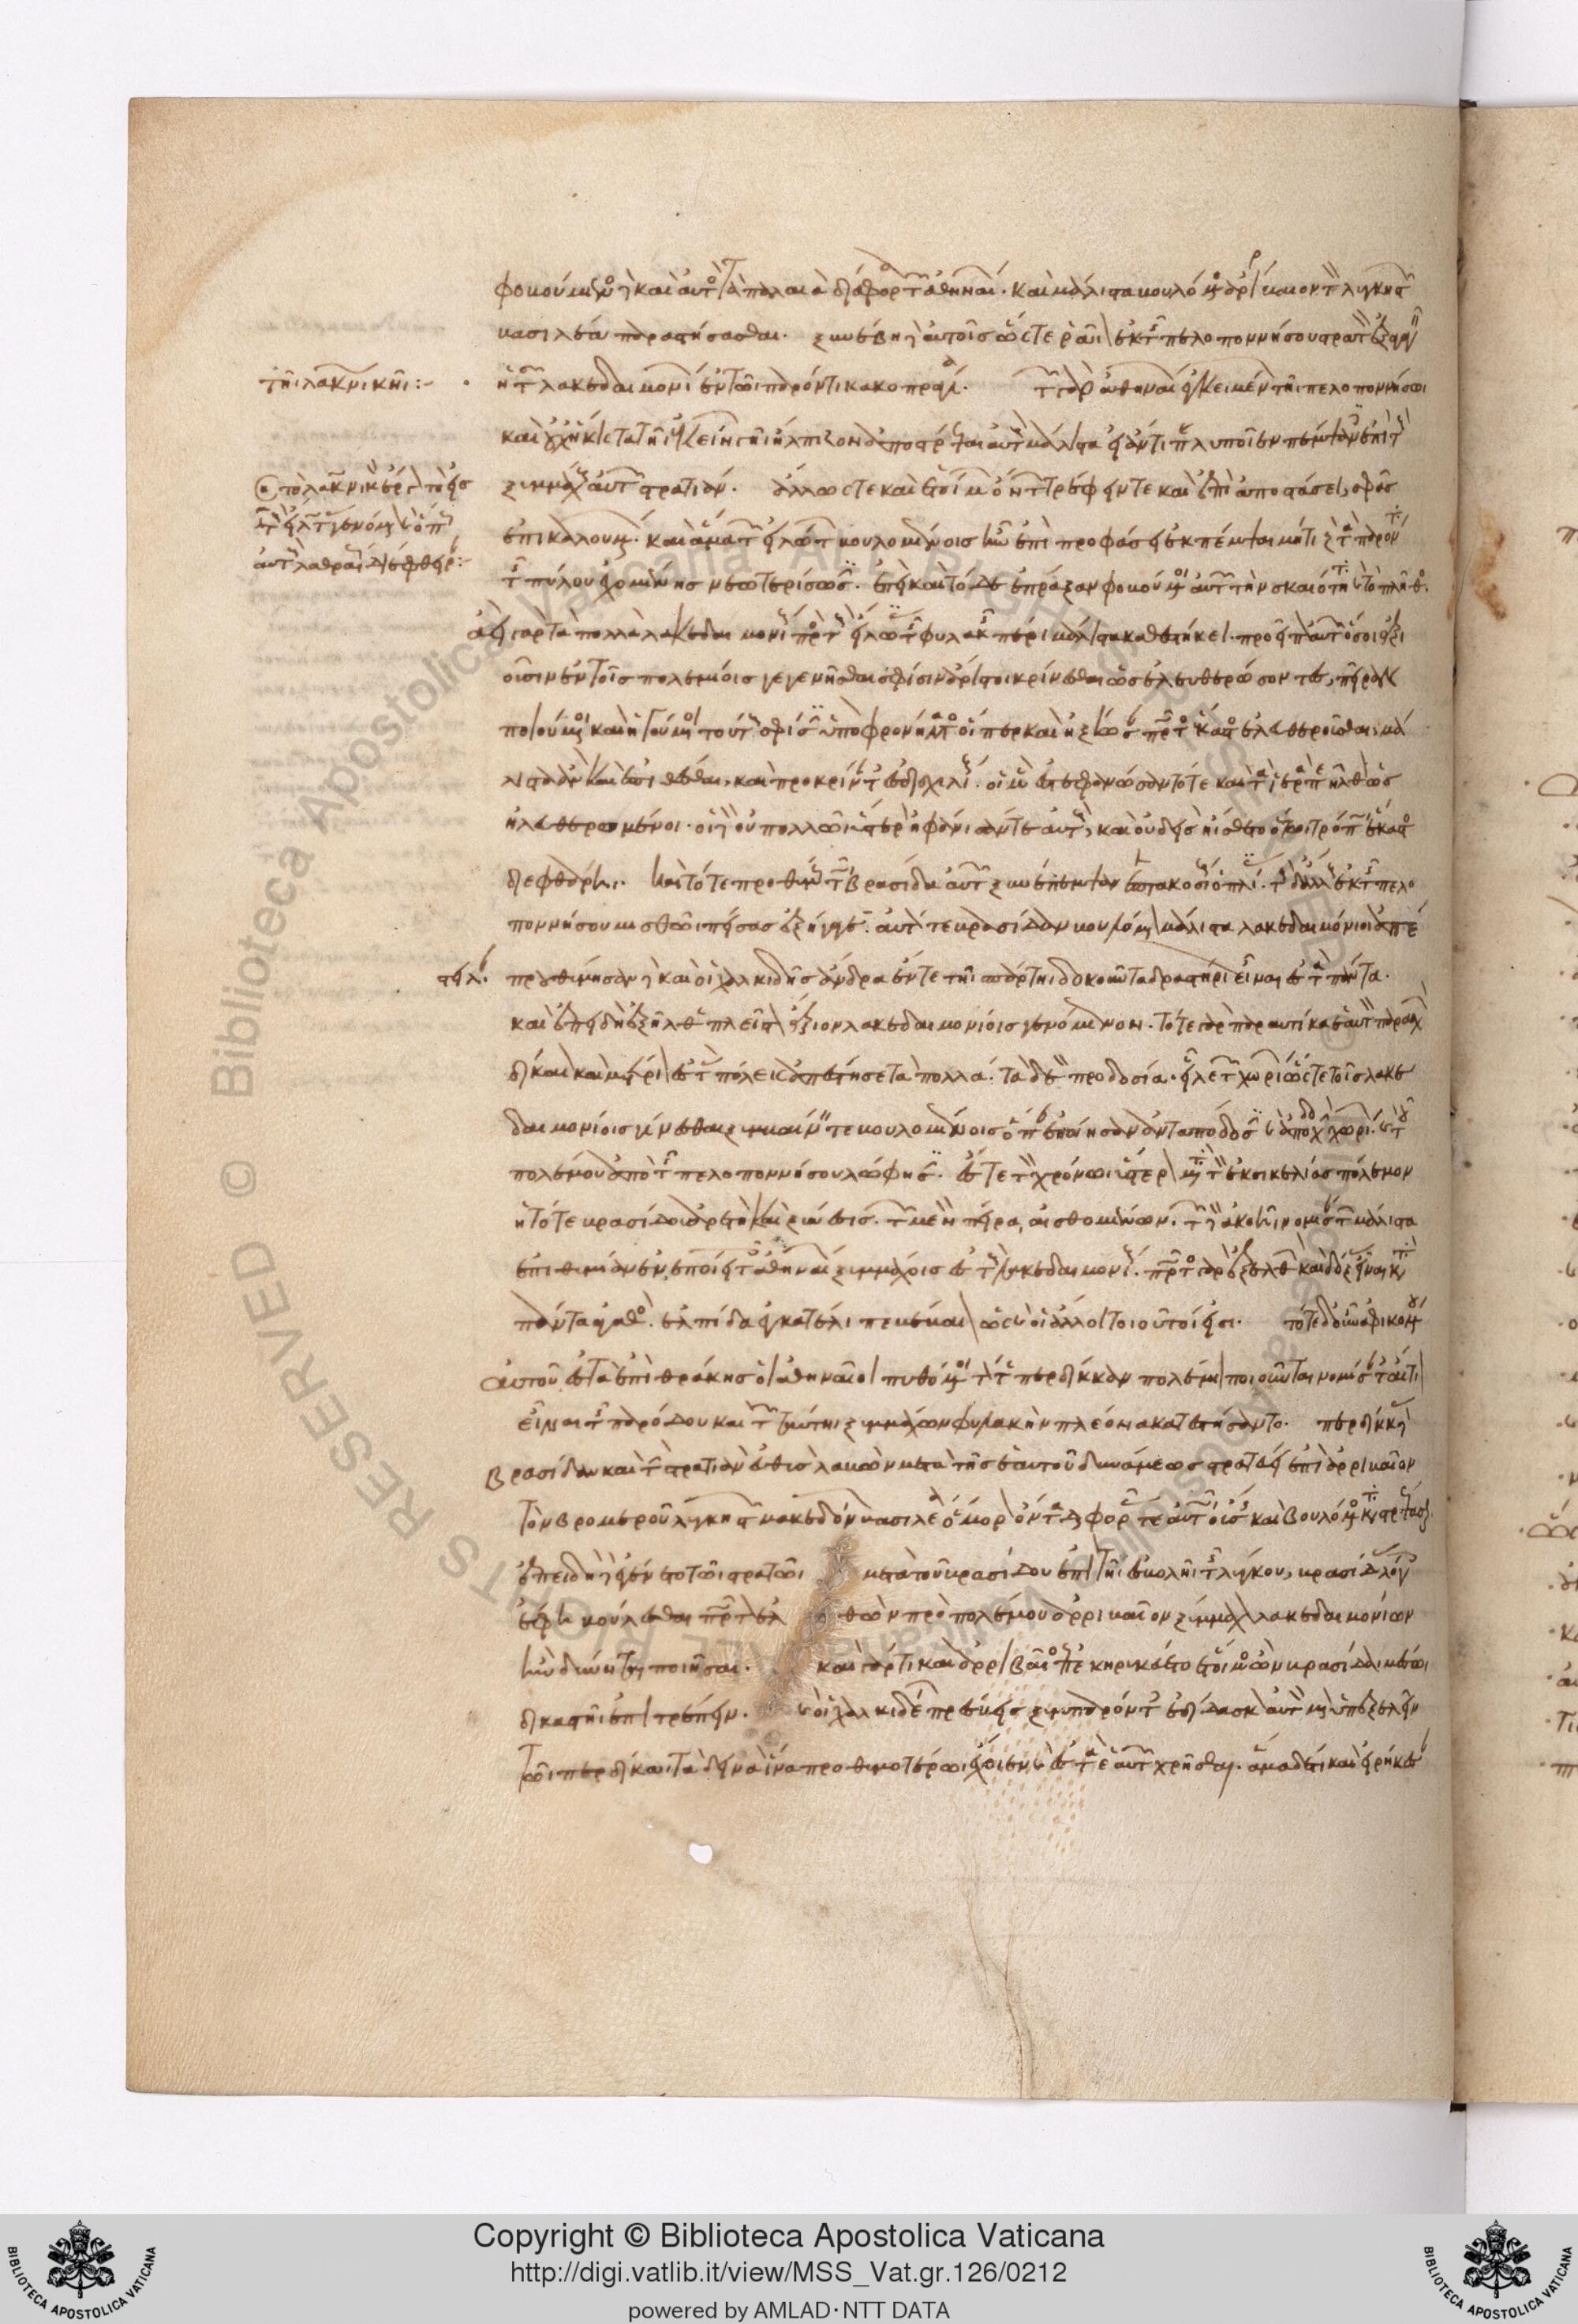 φοβούμενος δὲ καὶ αὐτὸς τὰ παλαιὰ διάφορα τῶν ἀθηναίων. καὶ μάλιστα βουλόμενος ἀρριβαῖον τὸν λυγκηστῶν
βασιλέα παραστήσασθαι. ξυνέβη δὲ αὐτοῖς ὥστε ῥᾶιον ἐκ τῆς πελοποννήσου στρατὸν ἐξαγαγεῖν
τῆι λακωνικῆι:-
ἡ τῶν λακεδαιμονίων ἐν τῶι παρόντι κακοπραγία. τῶν γὰρ ἀθηναίων ἐγκειμένων τῆι πελοποννήσωι
καὶ οὐχ ἥκιστα τῆι ἐκείνων γῆι ἤλπιζον ἀποστρέψειν αὐτοὺς μάλιστα εἰ ἀντιπαραλυποῖεν πέμψαντες ἐπὶ τοὺς
ξυμμάχους αὐτῶν στρατιάν. ἄλλως τε καὶ ἑτοίμων ὄντων τρέφειν τε καὶ ἐπὶ ἀποστάσει, σφᾶς
ἐπικαλουμένων. καὶ ἅμα τῶν εἱλώτων βουλομένοις ἦν ἐπὶ προφάσει ἐκπέμψαι μή τι πρὸς τὰ παρόντα
τῆς πύλου ἐχομένης νεωτερίσωσιν. ἐπεὶ καὶ τόδε ἔπραξαν φοβούμενοι αὐτῶν τὴν σκαιότητα καὶ τὸ πλῆθος.
ἀεὶ γὰρ τὰ πολλὰ λακεδαιμονίοις πρὸς τοὺς εἵλωτας τῆς φυλακῆς πέρι μάλιστα καθεστήκει. προεῖπον αὐτῶν ὅσοι ἀξι
οῦσιν ἐν τοῖς πολεμίοις γεγενῆσθαι σφίσιν ἄριστοι κρίνεσθαι ὡς ἐλευθερώσοντες, πεῖραν
ποιούμενοι καὶ ἡγούμενοι τούτους σφίσιν ὑπὸ φρονήματος οἵπερ καὶ ἠξίωσαν πρῶτος ἕκαστος ἐλευθεροῦσθαι, μά
λιστα ἂν καὶ ἐπιθέσθαι. καὶ προκρίναντες ἐς δισχιλίους. οἱ μὲν ἐστεφανώσαντό τε καὶ τὰ ἱερὰ περιῆλθον ὡς
ἠλευθερωμένοι. οἱ δὲ οὐ πολλῶι ὕστερον ἠφάνισάν τε αὐτοὺς, καὶ οὐδεὶς ἤισθετο ὅτωι τρόπωι ἕκαστος
διεφθάρη. καὶ τότε προθύμως τῶι βρασίδαι αὐτῶν ξυνέπεμψαν ἑπτακοσίους ὁπλίτας. τοὺς δ' ἄλλους ἐκ τῆς πελο
ποννήσου μισθῶι πείσας ἐξήγαγεν. αὐτόν τε βρασίδαν βουλόμενον μάλιστα λακεδαιμόνιοι ἀπέ
στειλαν. προυθυμήθησαν δὲ καὶ οἱ χαλκιδῆς ἄνδρα ἔν τε τῆι σπάρτηι δοκοῦντα δραστήριον εἶναι ἐς τὰ πάντα.
καὶ ἐπειδὴ ἐξῆλθε πλείστου ἄξιον λακεδαιμονίοις γενόμενον. τό τε γὰρ παραυτίκα ἑαυτὸν παρασχὼν
δίκαιον καὶ μέτριον ἐς τὰς πόλεις ἀπέστησε τὰ πολλά. τὰ δὲ προδοσίαι εἷλε τῶν χωρίων ὥστε τοῖς λακε
δαιμονίοις γίγνεσθαι ξυμβαίνειν τε βουλομένοις ὅπερ ἐποίησαν ἀνταπόδοσιν καὶ ἀποδοχὴν χωρίων. καὶ τοῦ
πολέμου ἀπὸ τῆς πελοποννήσου λώφησιν. ἔς τε τὸν χρόνωι ὕστερον μετὰ τὰ ἐκ σικελίας πόλεμον
ἡ τότε βρασίδου ἀρετὴ καὶ ξύνεσις. τῶν μὲν πείραι αἰσθομένων. τῶν δὲ ἀκοῆι νομισάντων μάλιστα
ἐπιθυμίαν ἐνεποίει τοῖς ἀθηναίων ξυμμάχοις ἐς τοὺς λακεδαιμονίους. πρῶτος γὰρ ἐξελθὼν καὶ δόξας εἶναι κατὰ
πάντα ἀγαθὸς. ἐλπίδα ἐγκατέλιπε βέβαιον ὡς καὶ οἱ ἄλλοι τοιοῦτοί εἰσι. τότε δ' οὖν ἀφικομένου
αὐτοῦ ἐς τὰ ἐπὶ θράκης οἱ ἀθηναῖοι πυθόμενοι τόν τε περδίκκαν πολέμιον ποιοῦνται νομίσαντες αἴτιον
εἶναι τῆς παρόδου καὶ τῶν ταύτηι ξυμμάχων φυλακὴν πλέονα κατεστήσαντο. περδίκκας δὲ
βρασίδαν καὶ τὴν στρατιὰν εὐθὺς λαβὼν μετὰ τῆς ἑαυτοῦ δυνάμεως στρατεύει ἐπὶ ἀρριβαῖον
τὸν βρομεροῦ λυγκηστῶν μακεδόνων βασιλέα ὅμορον ὄντα διαφορᾶς τε αὐτῶι οὔσης καὶ βουλόμενος καταστρέψασθαι.
ἐπειδὴ δὲ ἐγένετο τῶι στρατῶι μετὰ τοῦ βρασίδου ἐπὶ τῆι ἐσβολῆι τῆς λύγκου, βρασίδας λόγοις
ἔφη βούλεσθαι πρῶτον ἐλθὼν πρὸ πολέμου ἀρριβαῖον ξύμμαχον λακεδαιμονίων
ἢν δύνηται ποιῆσαι. καὶ γάρ τι καὶ ἀρριβαῖος ἐπεκηρυκεύετο ἑτοῖμος ὢν βρασίδαι μέσωι
δικαστῆι ἐπιτρέπειν. καὶ οἱ χαλκιδέων πρέσβεις ξυμπαρόντες ἐδίδασκον αὐτὸν μὴ ὑπεξελεῖν
τῶι περδίκκαι τὰ δεινὰ ἵνα προθυμοτέρωι ἔχοιεν καὶ ἐς τὰ ἑαυτῶν χρῆσθαι. ἅμα δέ τι καὶ εἰρήκεσαν